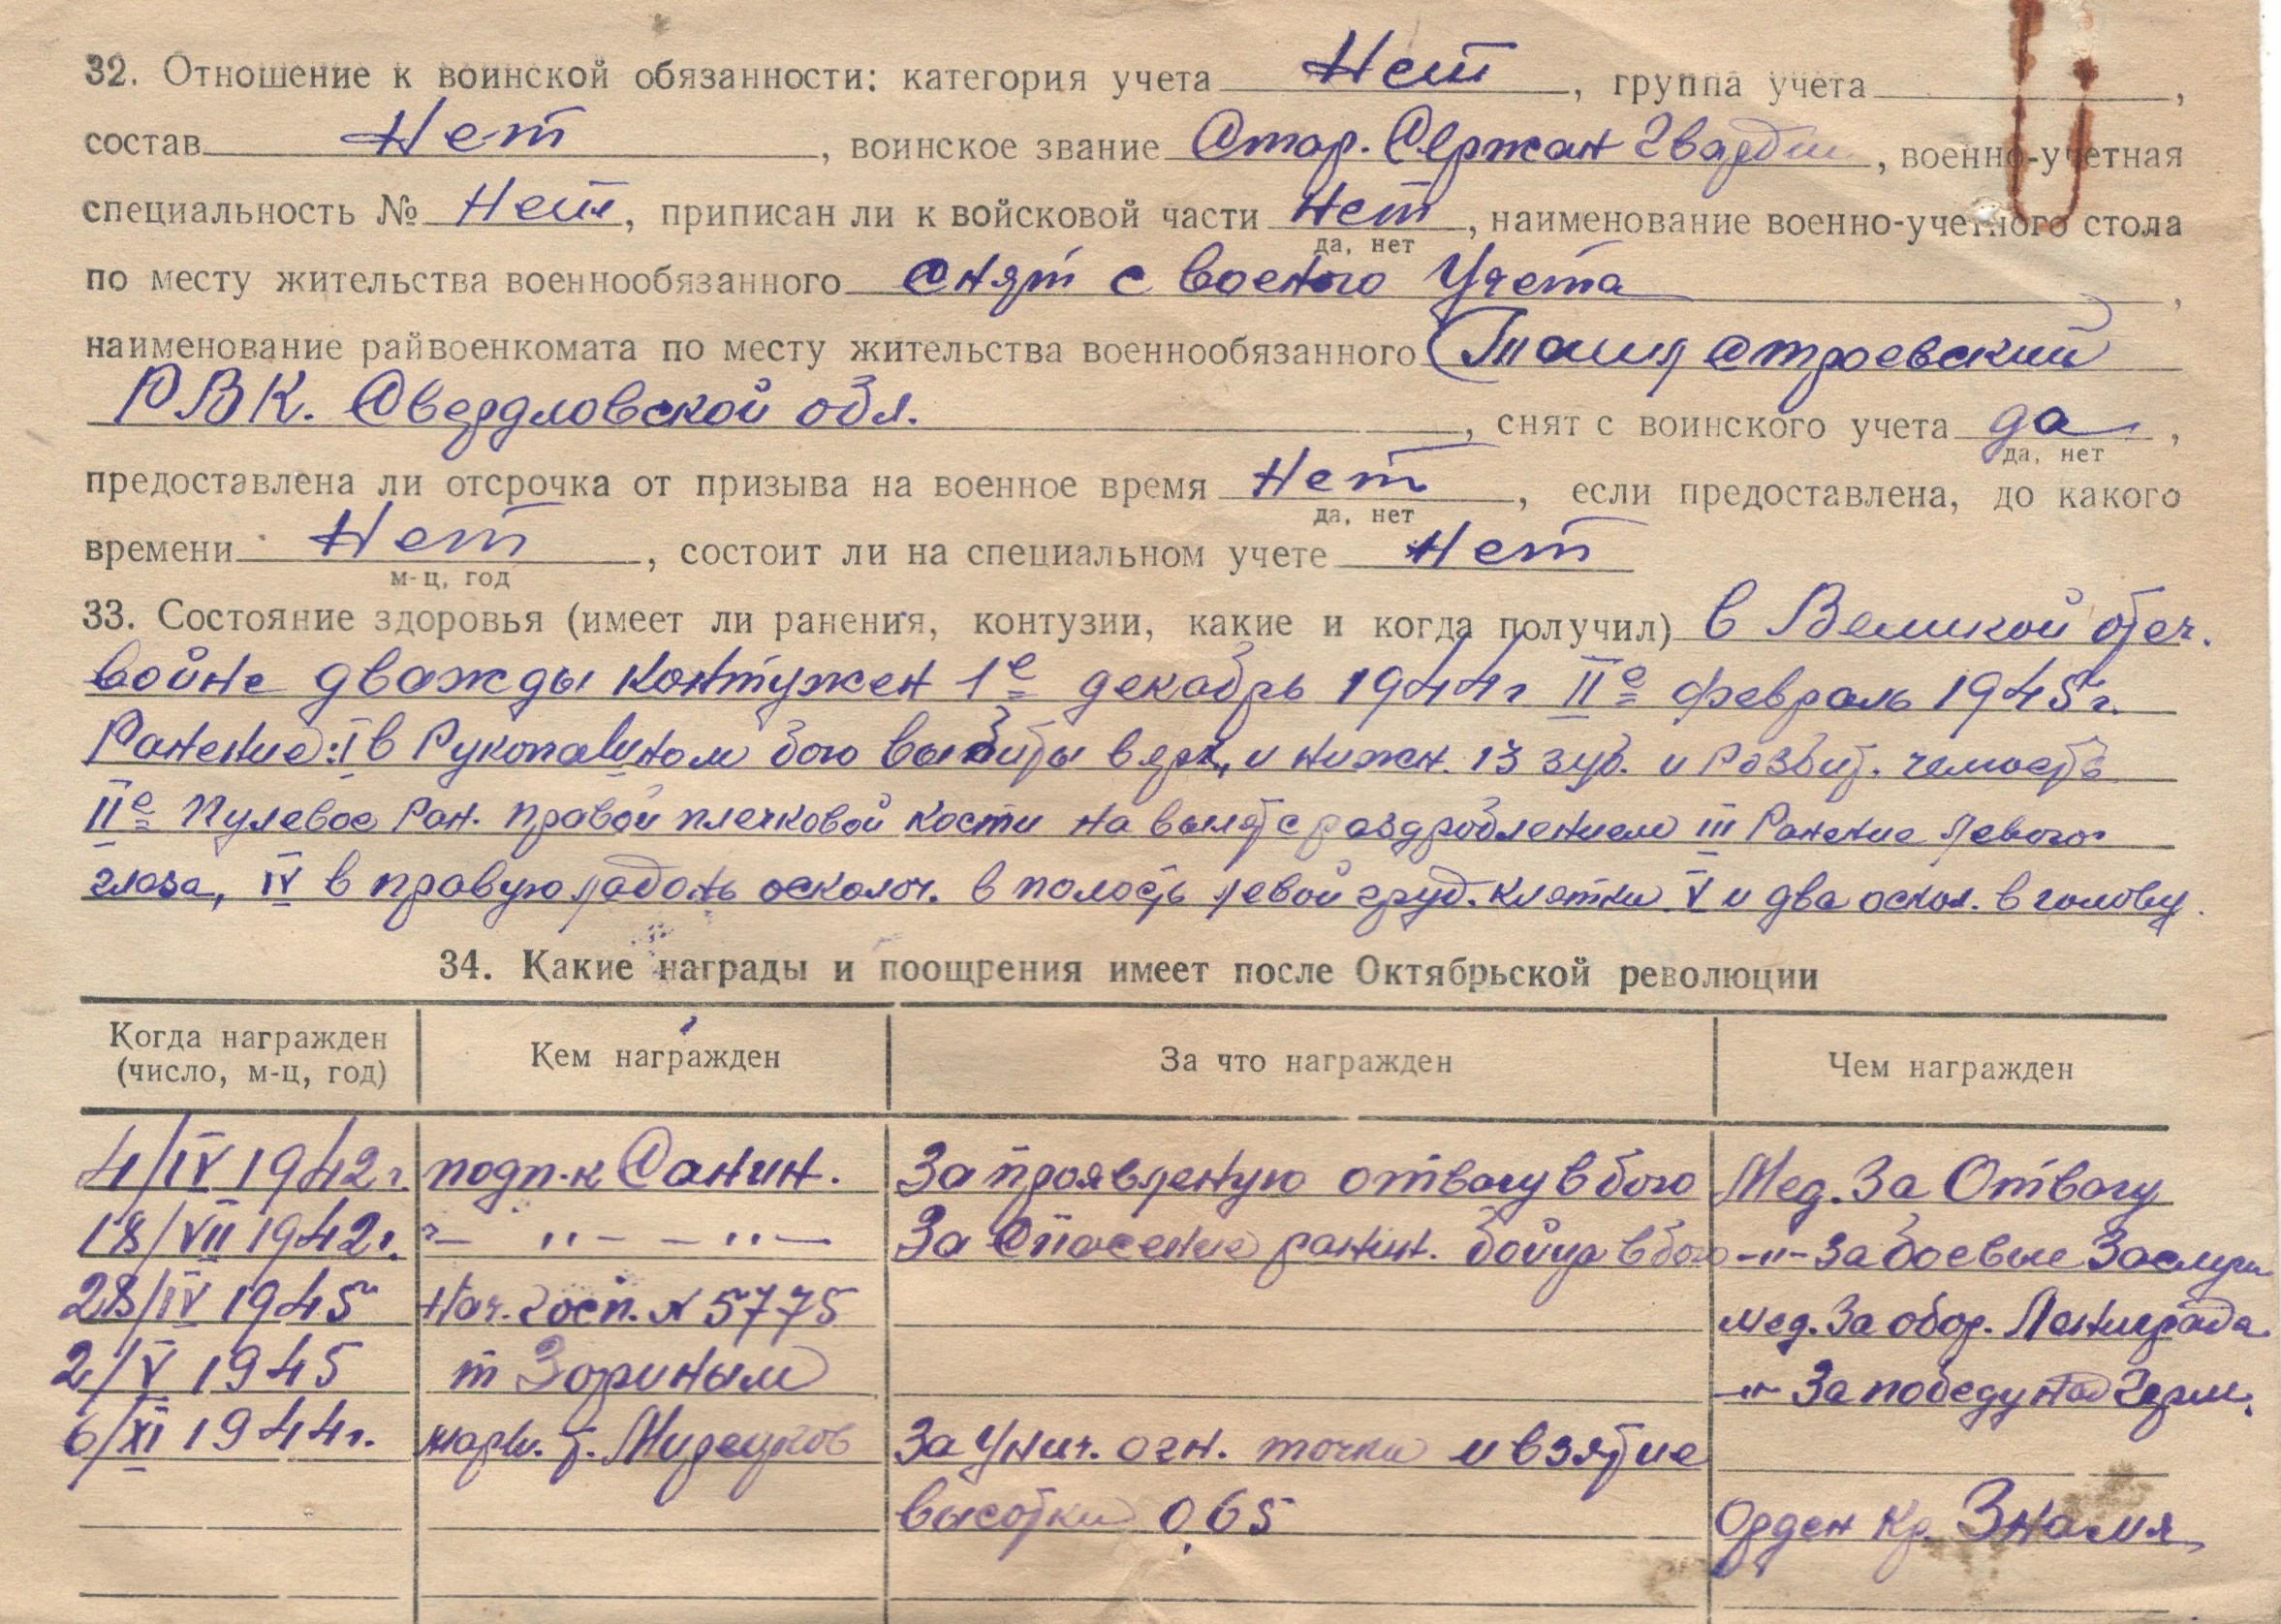 32. Отношение к воинской обязанности: категория учета Нет, группа учета ,
состав Нет, воинское звание Стар. Сержан Гвардии, военно-учетная
специальность № Нет, приписан ли к войсковой части Нет, наименование военно-учетного стола
да, нет
по месту жительства военнообязанного снят с военого Учета,
наименование райвоенкомата по месту жительства военнообязанного
РВК. Свердловской обл., снят с воинского учета да,
да, нет
предоставлена ли отсрочка от призыва на военное время Нет, если предоставлена, до какого
да, нет
времени Нет, состоит ли на специальном учете Нет
м-ц, год
33. Состояние здоровья (имеет ли ранения, контузии, какие и когда получил) в Великой отеч.
войне дважды контужен 1е декабрь 1944г IIе февраль 1945г.
Ранение: I в Рукопашном бою выбиты в верх. и нижн. 13 зуб. и Разбит. челюсть
IIе Пулевое Ран. правой плечковой кости на вылет с раздроблением III Ранение левого
глаза, IV в правую ладонь осколоч. в полость левой груд. клетки V и два оскол. в голову.
34. Какие награды и поощрения имеет после Октябрьской революции
Когда награжден (число, м-ц, год) Кем награжден За что награжден Чем награжден
4/IV 1942г. подп-к Санин. За проявленую отвагу в бою Мед. За Отвагу
18/VII 1942г. — " — — " — За Спасение ранин. бойца в бою —"— За боевые Заслуги
28/IV 1945 Нач. Госп. № 5775 мед. За обор. Ленинграда
2/V 1945 т Зориным —"— За победу над Герм.
6/XI 1944г. марш. т. За Унич. огн. точки и взятие
высотки 0,65 Орден Кр. Знамя